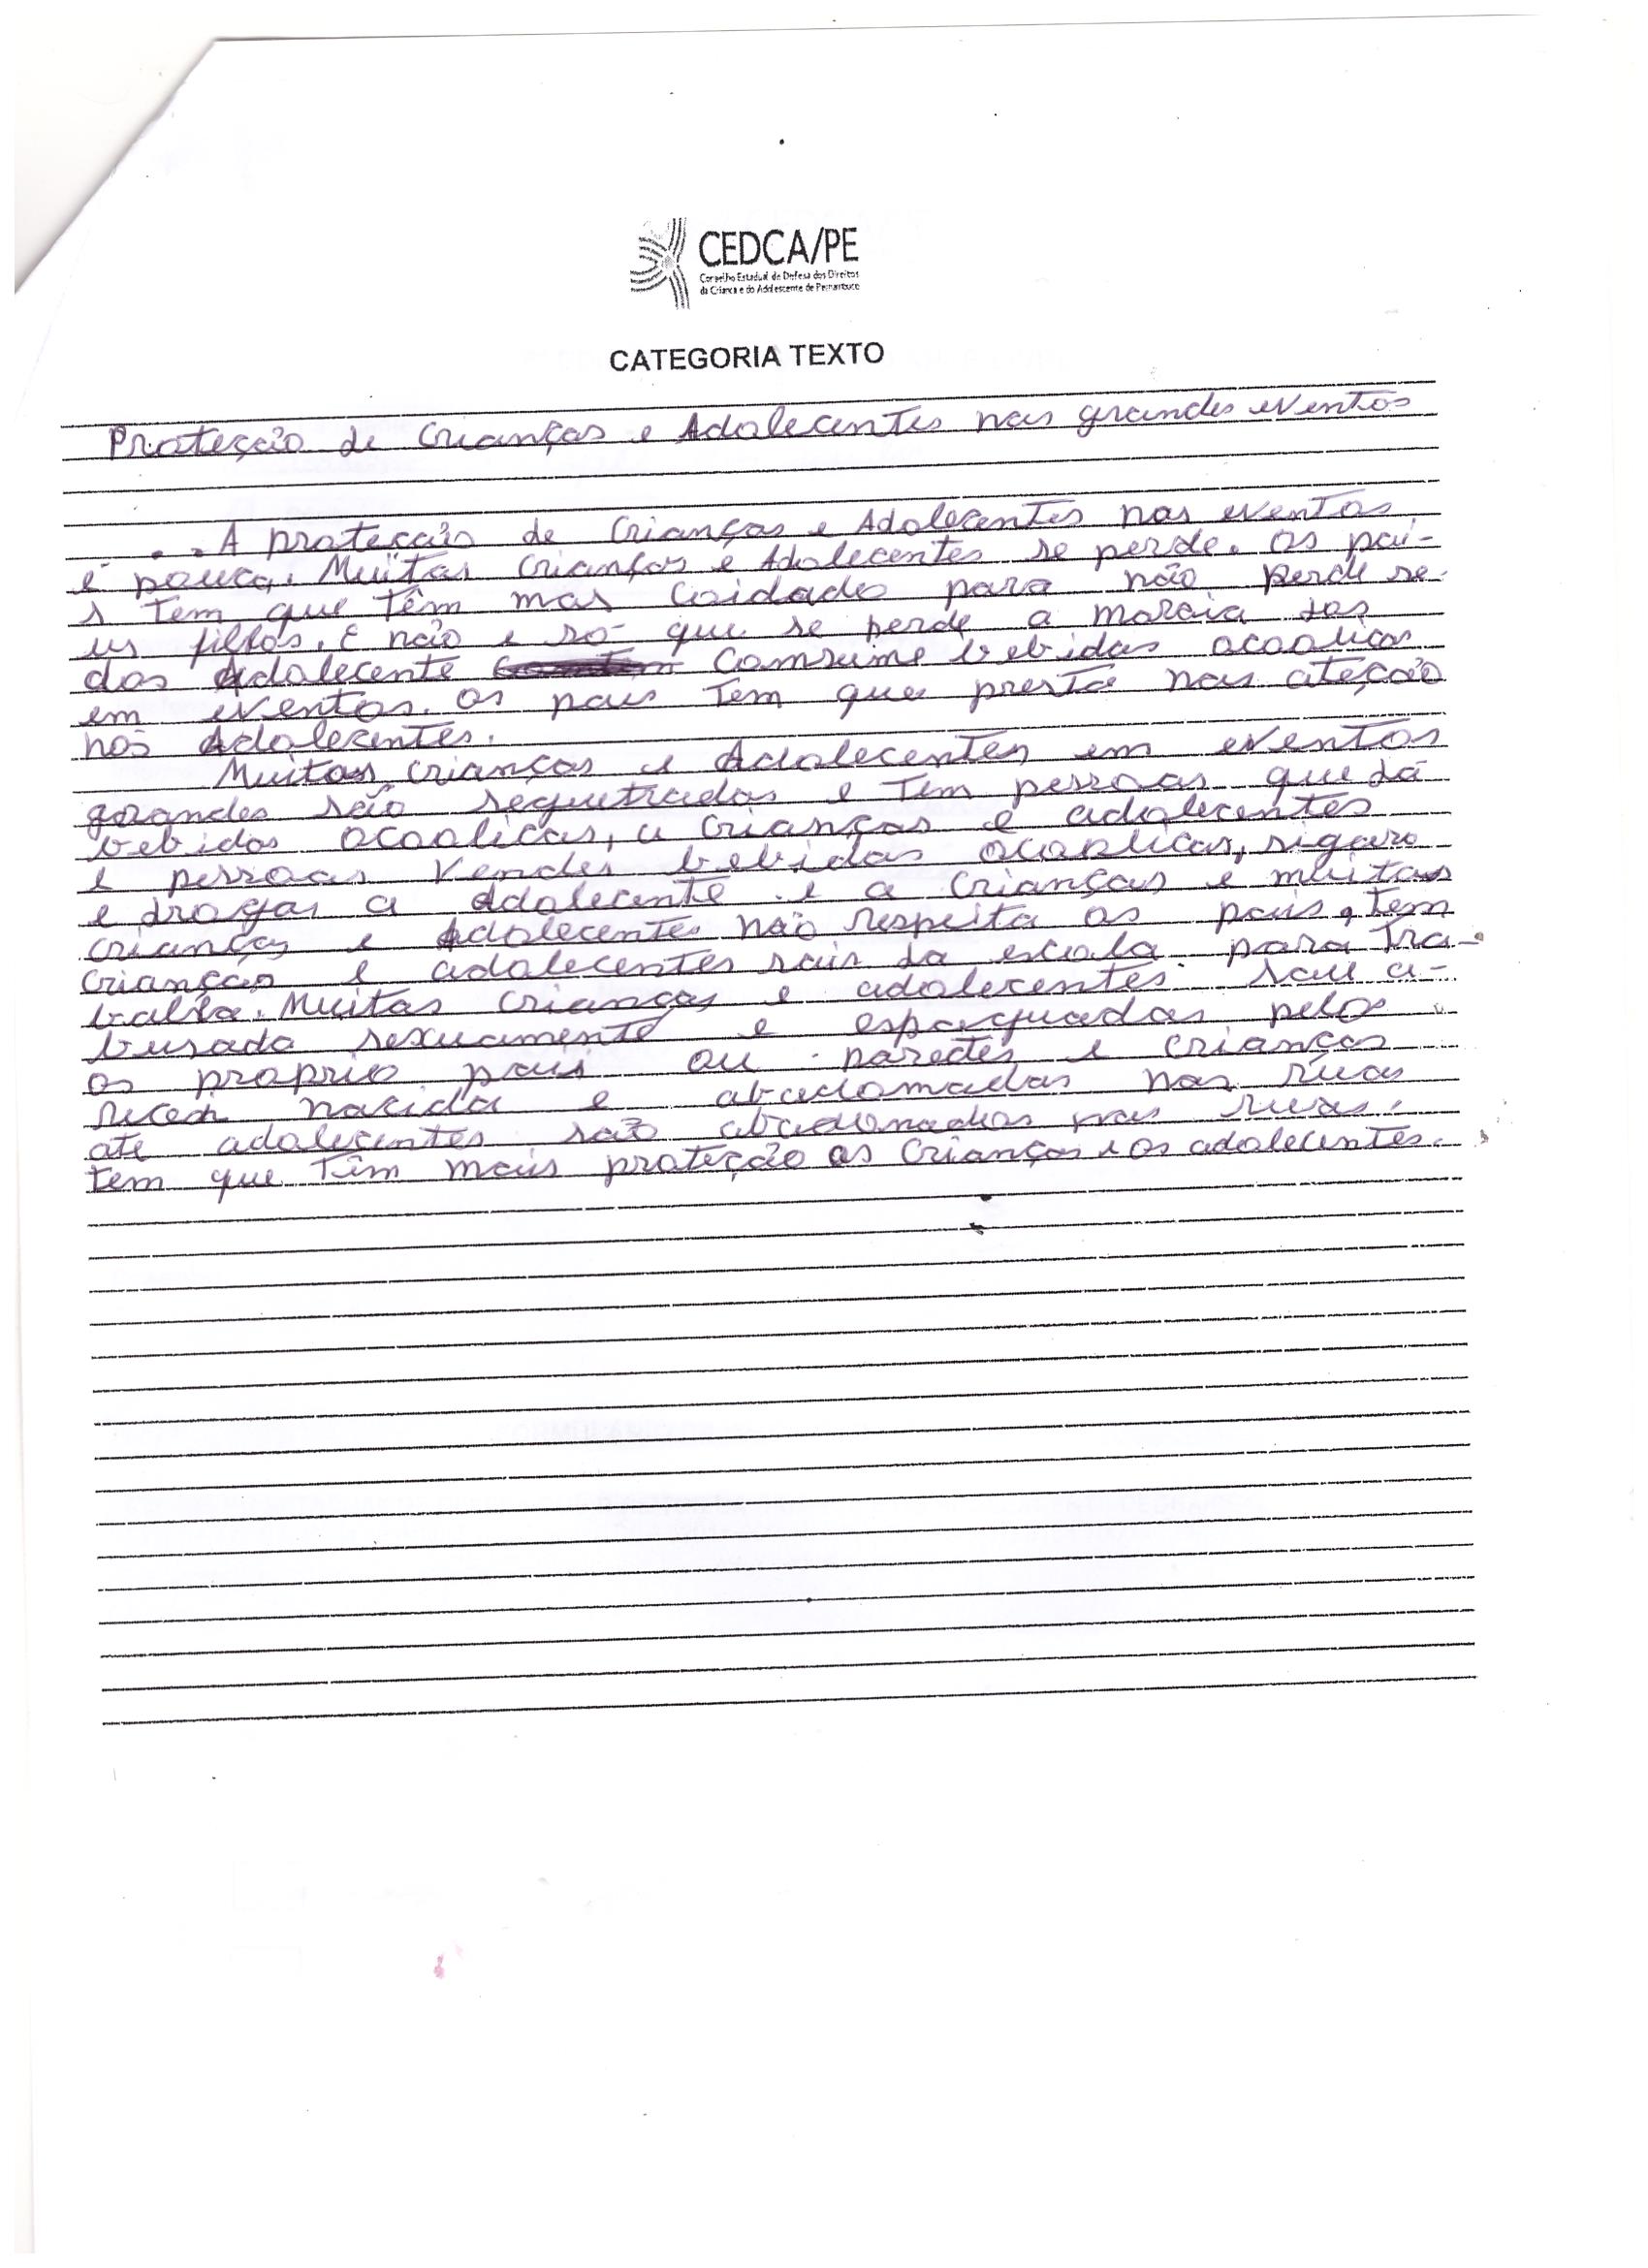 CEDCA/PE
Conselho Estadual de Defesa dos Direitos
da Criança e do Adolescente de Pernambuco
CATEGORIA TEXTO
Proteção de Crianças e Adolecentes nas grandes eventos
A proteção de Crianças e Adolecentes nos eventos
é pouca. Muitas crianças e Adolecentes se perde. Os pai-
s tem que têm mas coidado para não perde se-
us filhos. E não e só que se perde a moraia das
dos Adolecente Comsume bebidas acoolicas
em eventos. Os pais tem que presta nas ateção
nos Adolecentes.
Muitas crianças e Adolecentes em eventos
grandes são sequetradas e tem pessoas que dá
bebidas acoolicas, a crianças e adolecentes
e pessoas vendes bebidas acoolicas, sigaro
e drogas a Adolecente e a crianças e muitas
crianças e Adolecentes não respeita os pais, tem
crianças e adolecentes sair da escola para tra-
balha. Muitas crianças e adolecentes sau a-
busada sexuamente e espaquadas pelos
os proprio pais ou paredes e crianças
recen nacidas e abadomadas nas ruas
até adolecentes são abadonados nas ruas.
tem que têm mais proteção as crianças e os adolecentes.